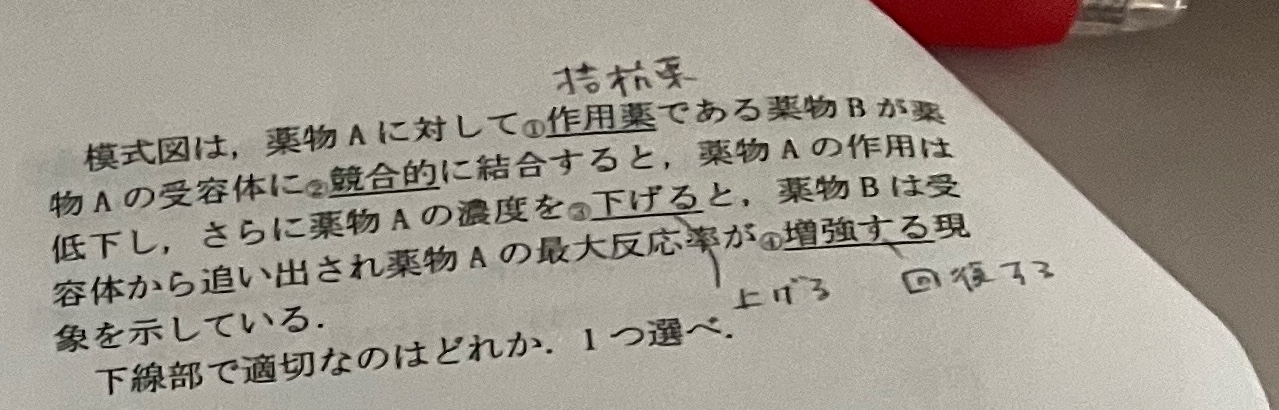 拮抗薬
模式図は，薬物 A に対して①作用薬である薬物 B が薬
物 A の受容体に②競合的に結合すると，薬物 A の作用は
低下し，さらに薬物 A の濃度を③下げると，薬物 B は受
容体から追い出され薬物 A の最大反応率が④増強する現
上げる 回復する
象を示している．
下線部で適切なのはどれか．1つ選べ．